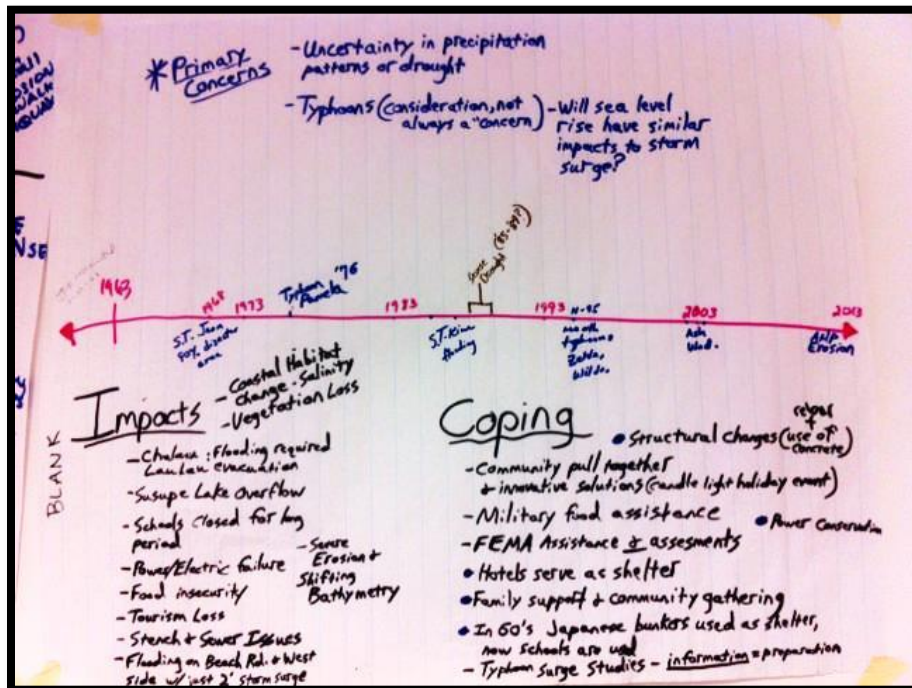 * Primary Concerns
- Uncertainty in precipitation
patterns or drought
- Typhoons (consideration, not
always a "concern")
- Will sea level
rise have similar
impacts to storm
surge?
NSE
1963
1968
1973
Typhoon '76
Pamela
1983
Drought (85-89?)
1993
2003
2013
S.T. Jean
disaster
area
S.T. Kim
flooding
Erosion
BLANK
Impacts
- Coastal Habitat
Change - Salinity
- Vegetation Loss
- Flooding required
LauLau evacuation
- Susupe Lake Overflow
- Schools closed for long
period
- Power/Electric failure
- Food insecurity
- Tourism Loss
- Stench & Sewer Issues
- Flooding on Beach Rd. & West
side w/ just 2' storm surge
- Severe
Erosion &
Shifting
Bathymetry
Coping
• Structural changes (use of
concrete)
- Community pull together
& innovative solutions (candle light holiday event)
- Military food assistance
• Power Conservation
- FEMA Assistance & assesments
• Hotels serve as shelter
• Family support & community gathering
• In 60's Japanese bunkers used as shelter,
now schools are used
- Typhoon Surge Studies - information = preparation